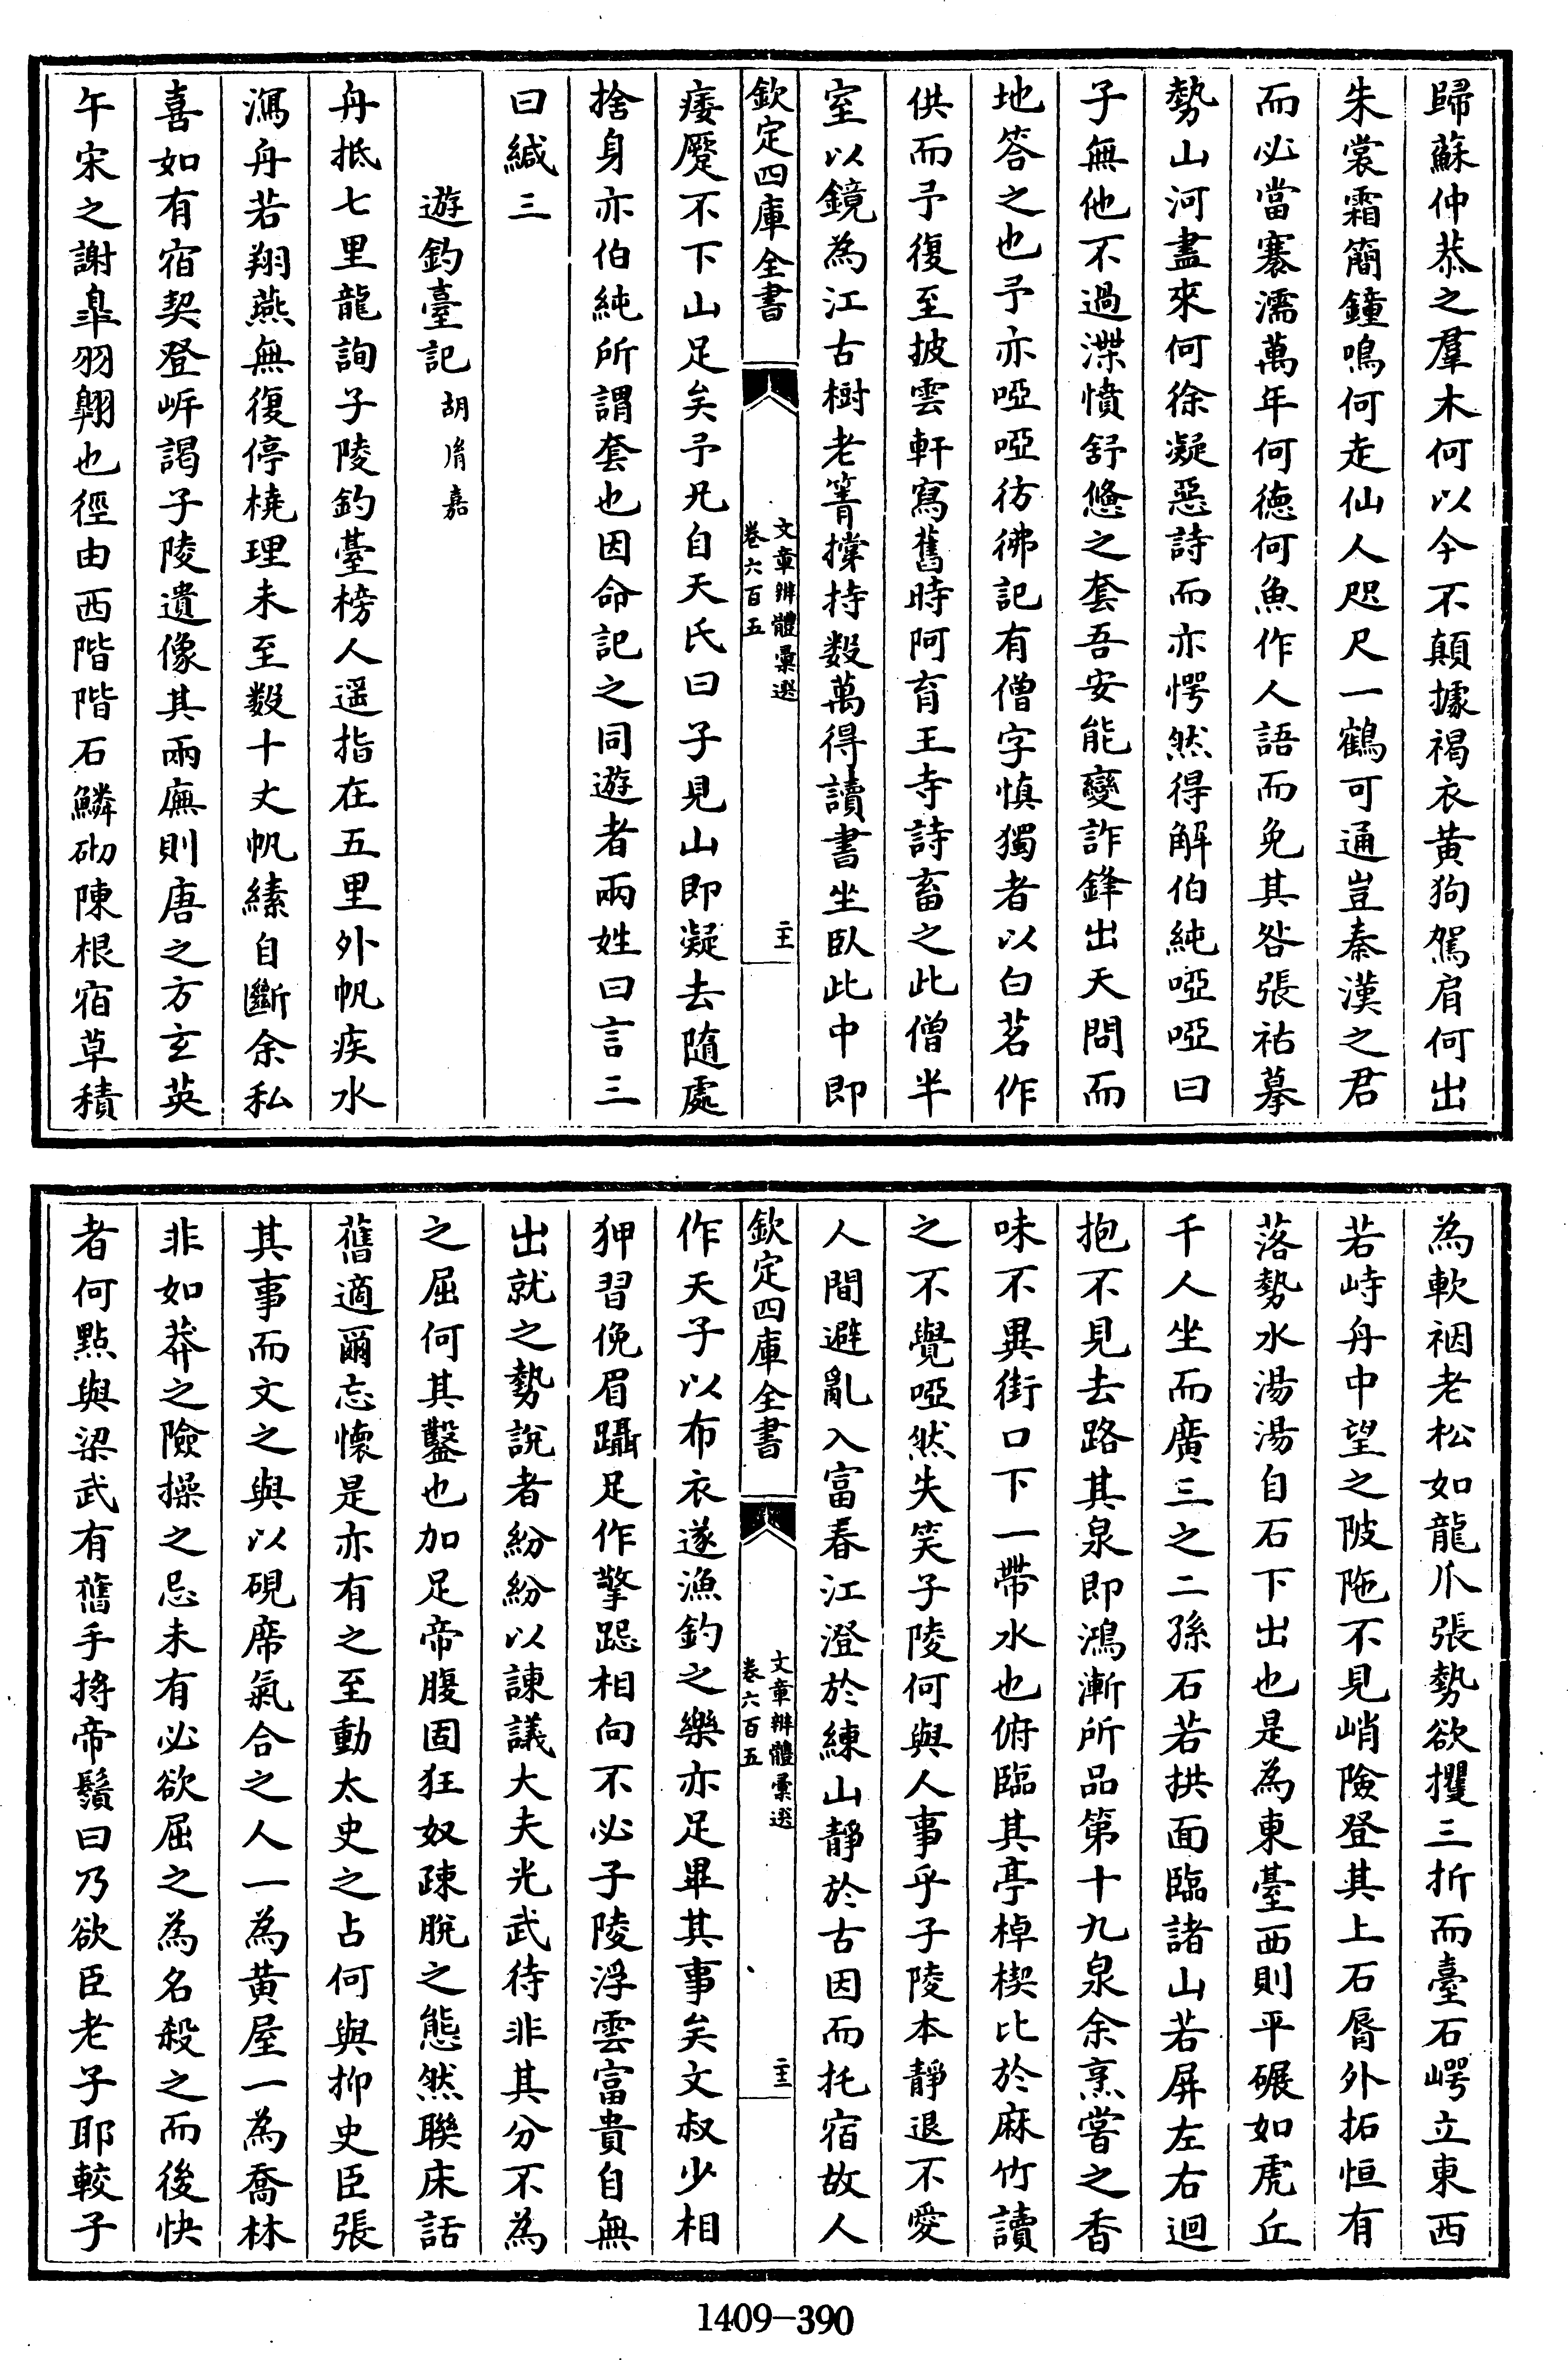 歸蘇仲恭之羣木何以今不顛據褐衣黃狗駕肩何出
朱裳霜簡鐘鳴何走仙人咫尺一鶴可通豈秦漢之君
而必當褰濡萬年何德何魚作人語而免其咎張祜摹
勢山河盡來何徐凝惡詩而亦愕然得解伯純啞啞曰
子無他不過渫憤舒憊之套吾安能變詐鋒出天問而
地答之也予亦啞啞彷彿記有僧字慎獨者以白茗作
供而予復至披雲軒寫舊時阿育王寺詩畜之此僧半
室以鏡為江古樹老箐撐持數萬得讀書坐臥此中即
欽定四庫全書
文章辨體彙選
卷六百五
痿蹷不下山足矣予兄自天氏曰子見山即凝去隨處
捨身亦伯純所謂套也因命記之同遊者兩姓曰言三
曰緘三
遊釣臺記 胡胤嘉
舟抵七里龍詢子陵釣臺榜人遥指在五里外帆疾水
瀉舟若翔燕無復停橈理未至數十丈帆縴自斷余私
喜如有宿契登㟁謁子陵遺像其兩廡則唐之方玄英
午宋之謝臯羽翱也徑由西階階石鱗砌陳根宿草積
為軟裀老松如龍爪張勢欲攫三折而臺石崿立東西
若峙舟中望之陂陁不見峭險登其上石脣外拓恒有
落勢水湯湯自石下出也是為東臺西則平碾如虎丘
千人坐而廣三之二孫石若拱面臨諸山若屏左右迴
抱不見去路其泉即鴻漸所品第十九泉余烹嘗之香
味不異街口下一帶水也俯臨其亭棹楔比於麻竹讀
之不覺啞然失笑子陵何與人事乎子陵本靜退不愛
人間避亂入富春江澄於練山靜於古因而托宿故人
欽定四庫全書
文章辨體彙選
卷六百五
作天子以布衣遂漁釣之樂亦足畢其事矣文叔少相
狎習俛眉躡足作擎跽相向不必子陵浮雲富貴自無
出就之勢說者紛紛以諫議大夫光武待非其分不為
之屈何其鑿也加足帝腹固狂奴疎脫之態然聯床話
舊適爾忘懷是亦有之至動太史之占何與抑史臣張
其事而文之與以硯席氣合之人一為黃屋一為喬林
非如莽之險操之忌未有必欲屈之為名殺之而後快
者何點與梁武有舊手捋帝鬚曰乃欲臣老子耶較子
1409-390